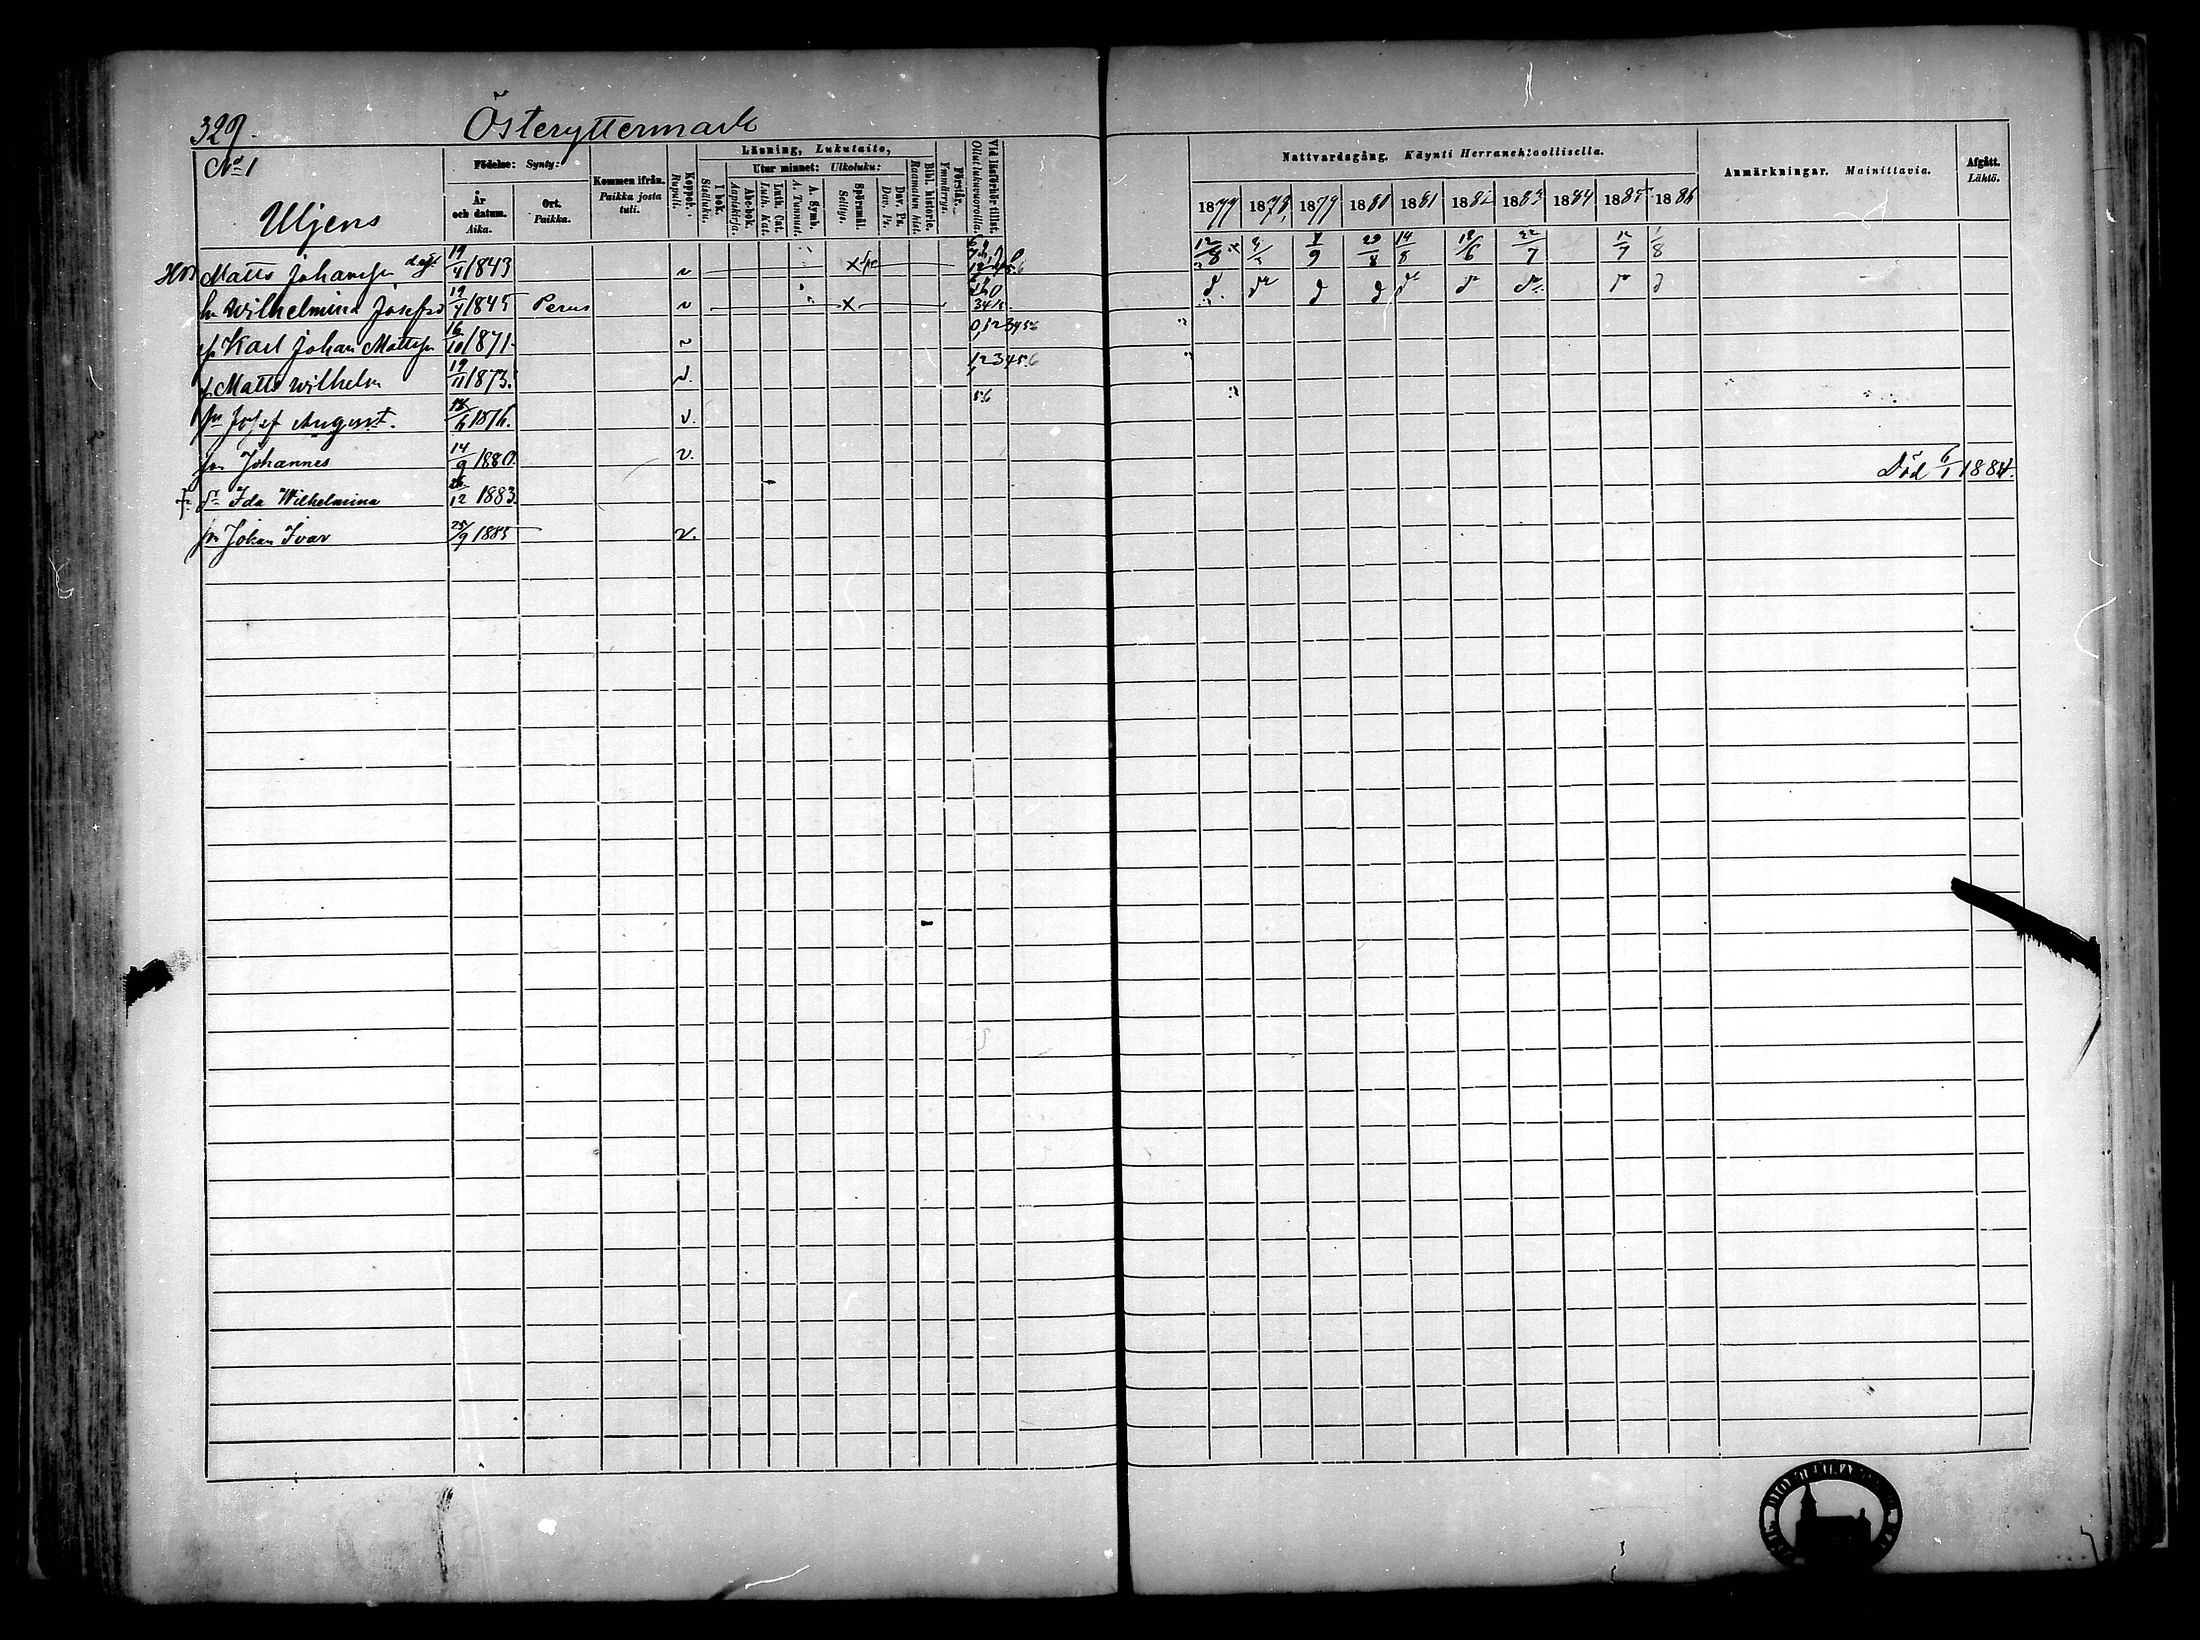 329.
Österyttermark
No 1
Uljens
Födelse: Synty:
År och datum. Aika.
Ort. Paikka.
Kommen ifrån. Paikka josta tuli.
Koppor. Rupuli.
Läsning, Lukutaito,
I bok. Sisäluku.
Utur minnet: Ulkoluku:
Abc-bok. Aapiskirja.
Luth. Cat. Luth. Kat.
A. Symb. A. Tunnust.
Spörsmål. Selitys.
Dav. Ps. Dav. Ps.
Bibl. historie. Raamatun hist.
Förstår. Ymmärrys.
Vid läsförhör tillst. Ollut lukuvuorolla.
Nattvardsgång, Käynti Herranehtoollisella.
1877 1878 1879 1880 1881 1882 1883 1884 1885 1886
Anmärkningar. Mainittavia.
Afgått. Lähtö.
Matts Johansson 19/4 1843 v 12/8 7/9 29/8 14/8 18/6 22/7 12/7 1/8
h Wilhelmina Josefsd 19/4 1845 Perus v
Karl Johan Mattss 16/10 1871 v
Matts Wilhelm 19/11 1873. v.
Josef August. 18/6 1876. v.
Johannes 14/9 1880. v.
Ida Wilhelmina 26/12 1883 Död 6/1 1884.
Johan Ivar 25/9 1885 v.